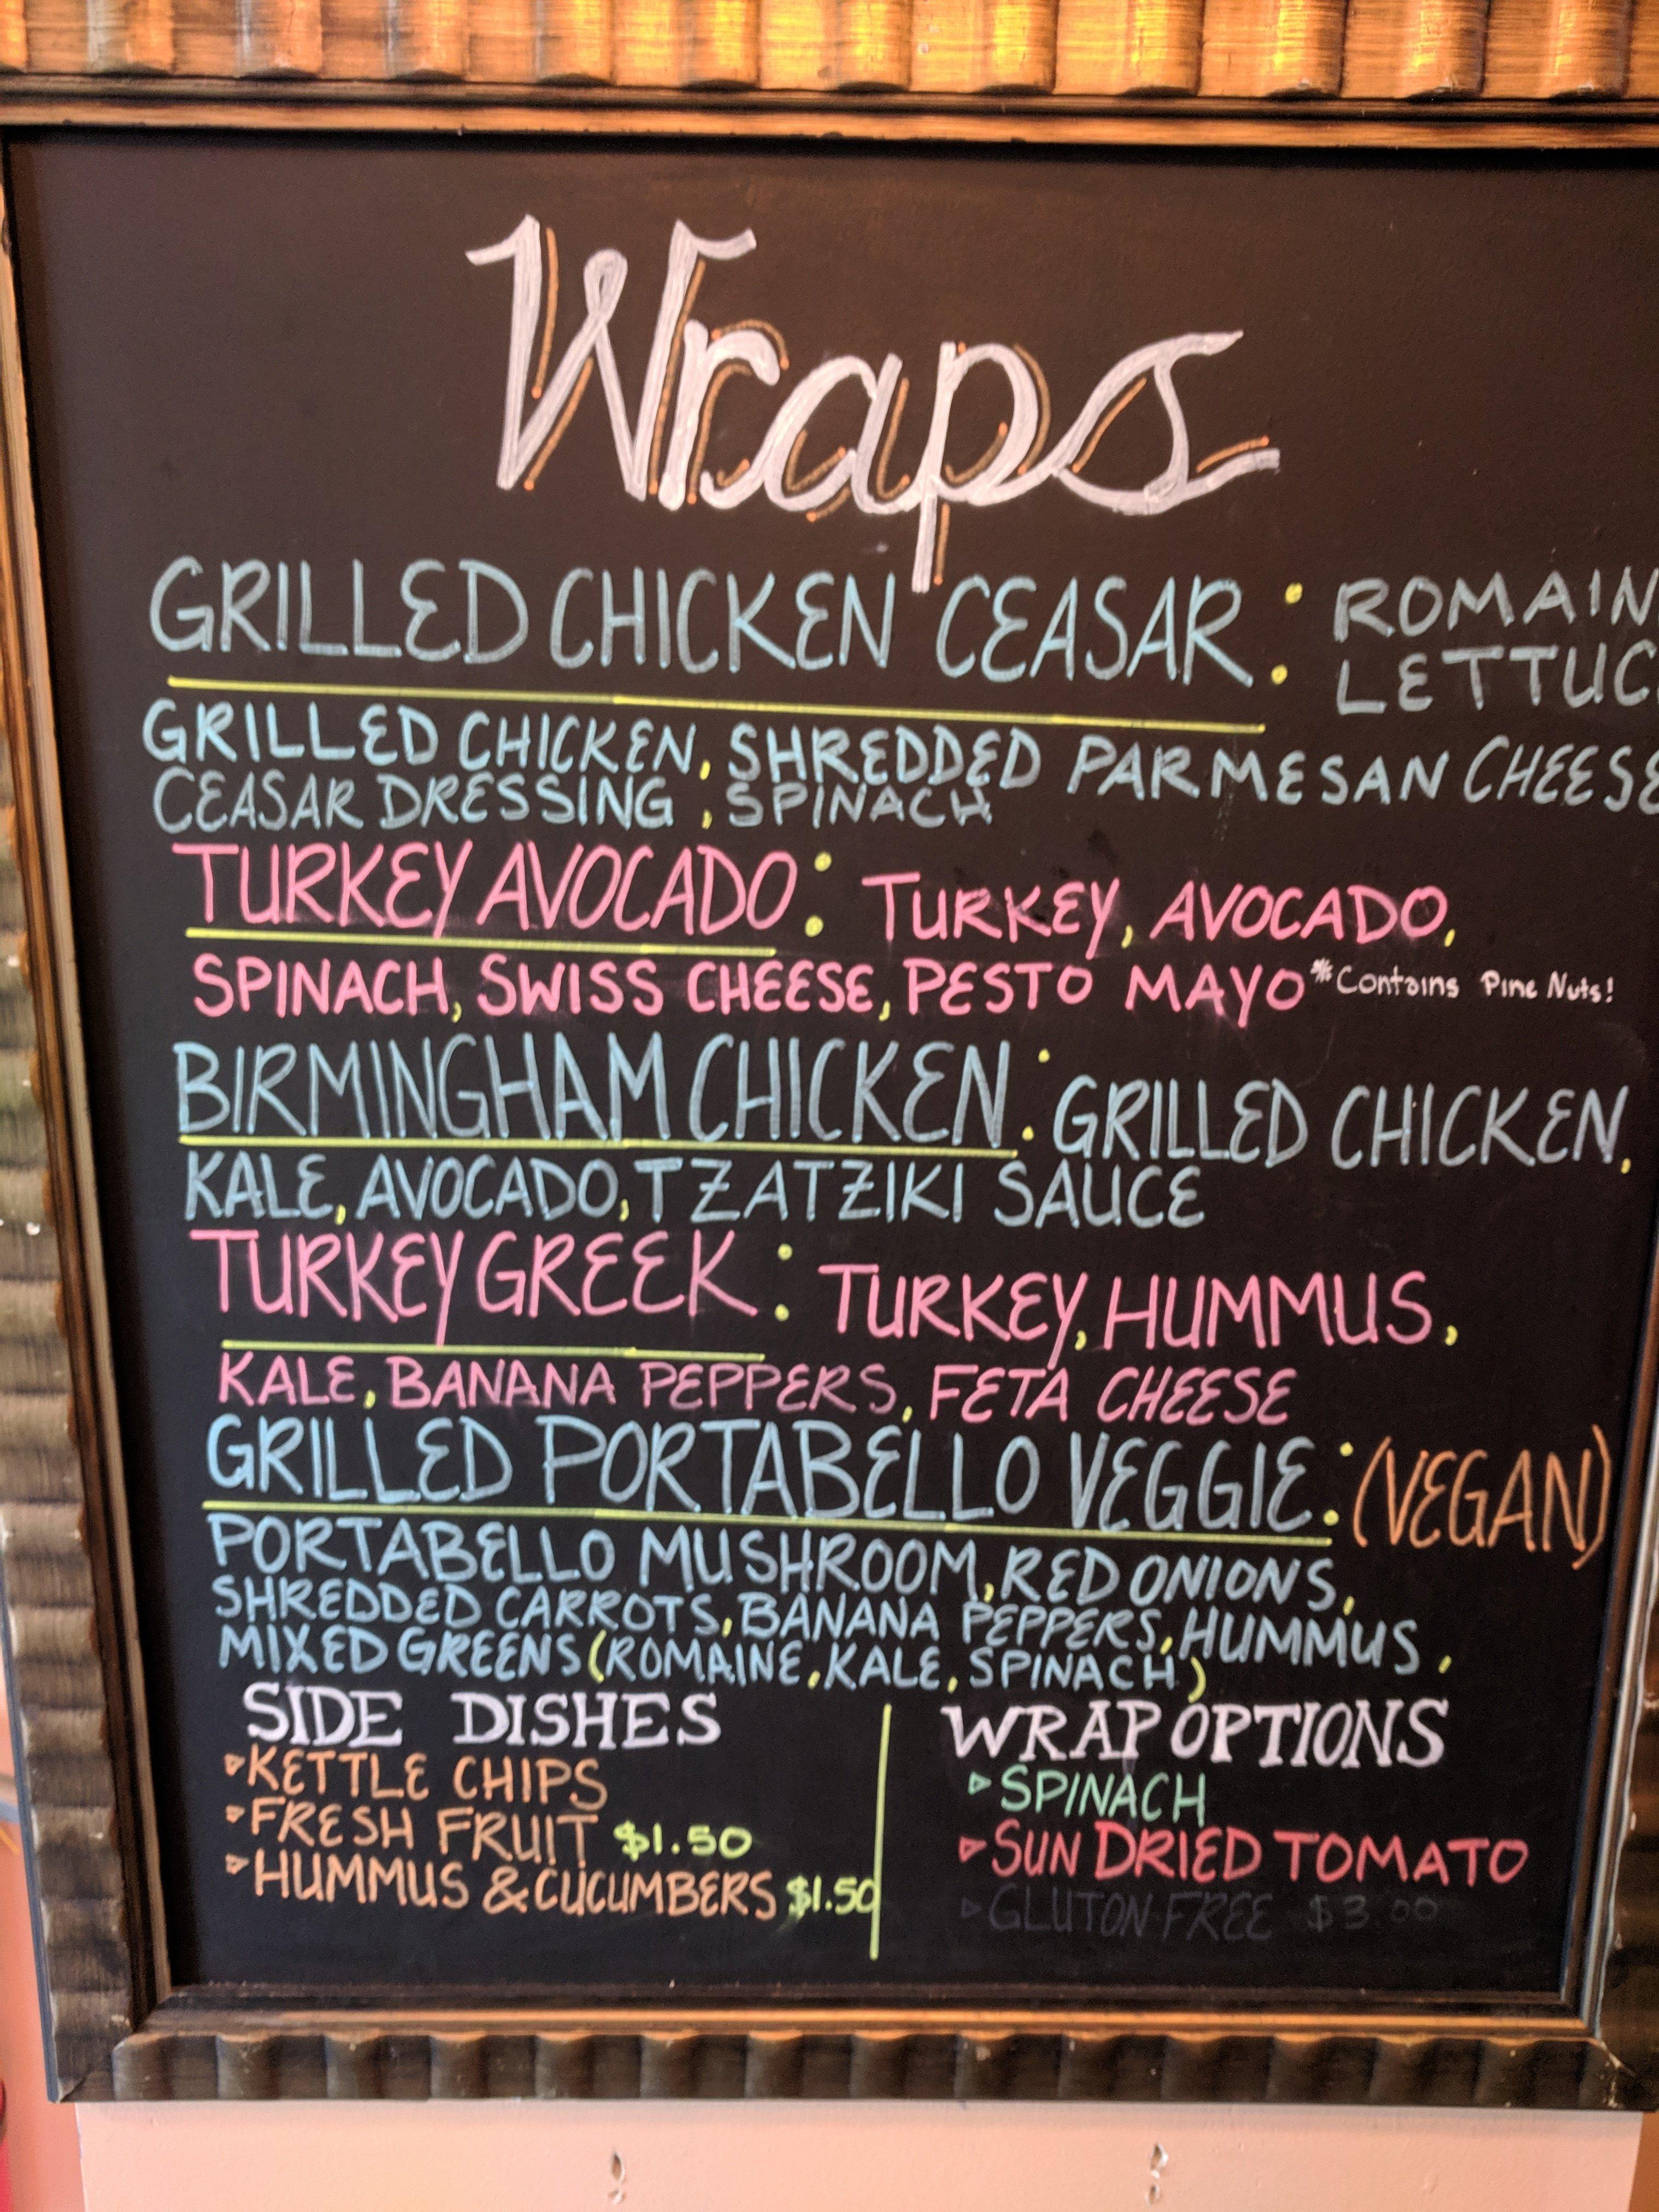 Wraps
GRILLED CHICKEN CEASAR: ROMAIN
LETTUC
GRILLED CHICKEN, SHREDDED PARMESAN CHEESE
CEASAR DRESSING, SPINACH
TURKEY AVOCADO: TURKEY, AVOCADO,
SPINACH, SWISS CHEESE, PESTO MAYO *Contains Pine Nuts!
BIRMINGHAM CHICKEN: GRILLED CHICKEN,
KALE, AVOCADO, TZATZIKI SAUCE
TURKEY GREEK: TURKEY, HUMMUS,
KALE, BANANA PEPPERS, FETA CHEESE
GRILLED PORTABELLO VEGGIE: (VEGAN)
PORTABELLO MUSHROOM, RED ONIONS,
SHREDDED CARROTS, BANANA PEPPERS, HUMMUS,
MIXED GREENS (ROMAINE, KALE, SPINACH)
SIDE DISHES
KETTLE CHIPS
FRESH FRUIT $1.50
HUMMUS & CUCUMBERS $1.50
WRAP OPTIONS
SPINACH
SUN DRIED TOMATO
GLUTON FREE $3.00